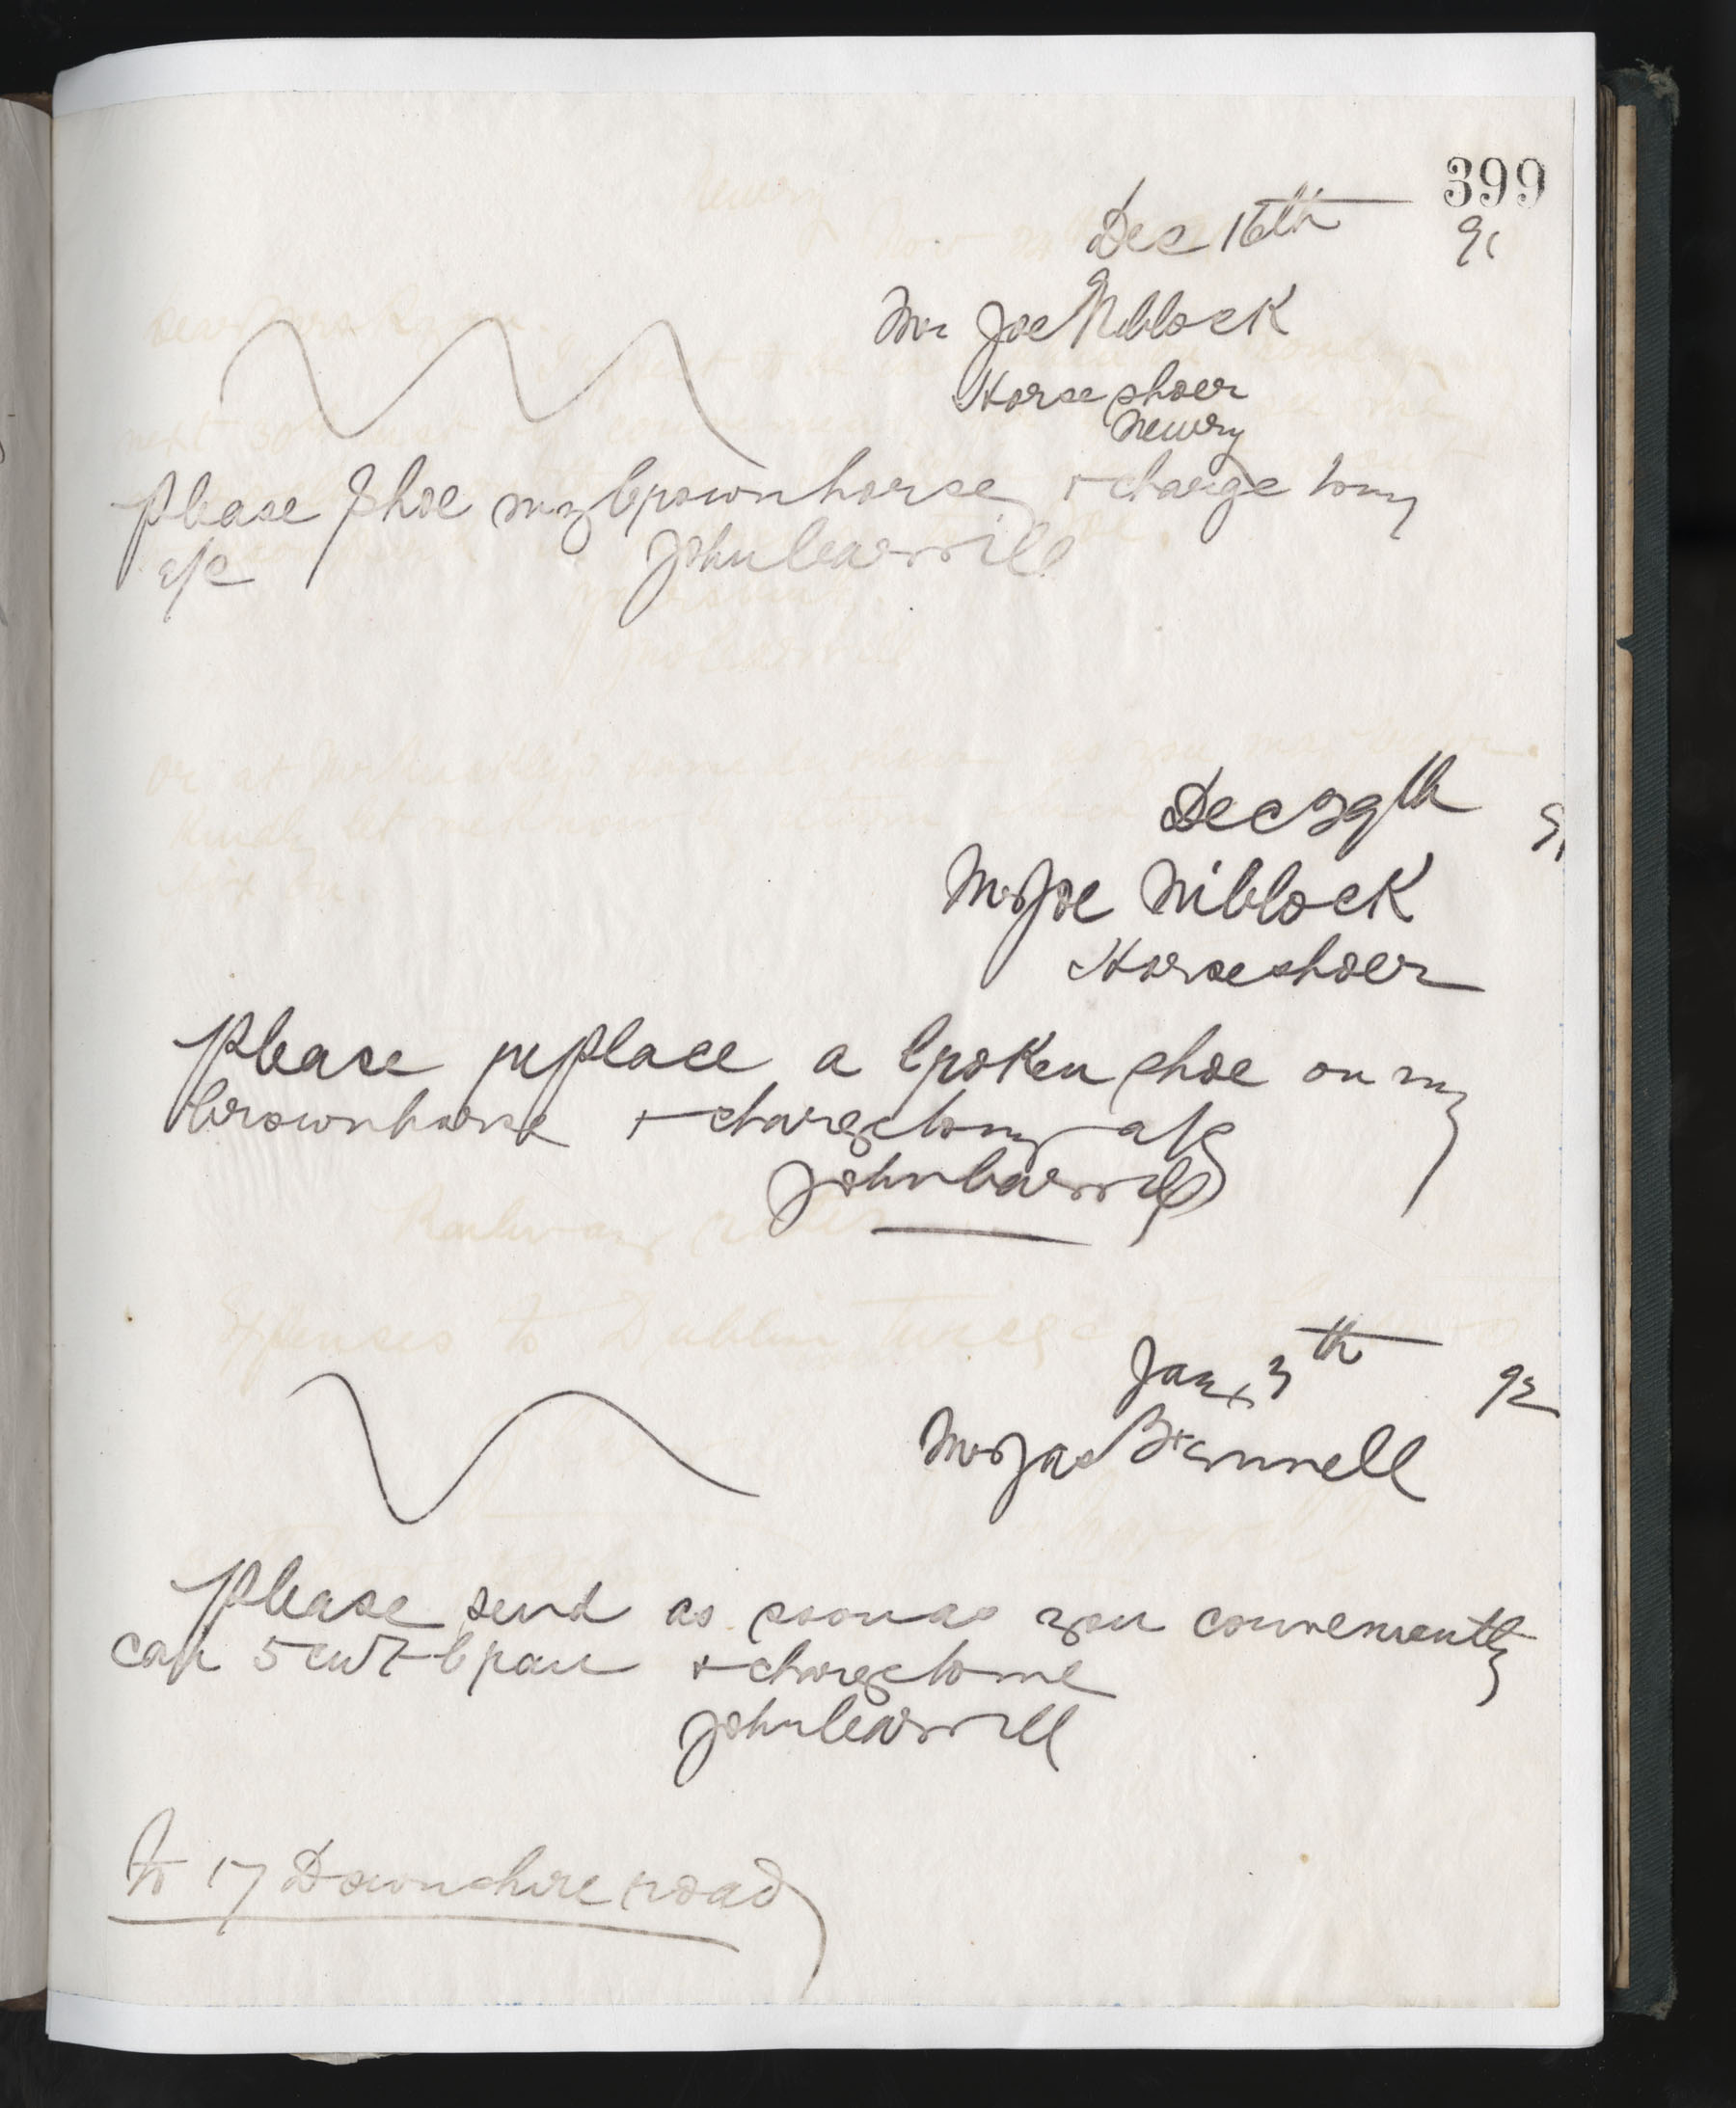 399
Dec 16th 91
Mr Joe Niblock
Horse shoer
Newry
Please Shoe my brown horse + charge to my
a/c John Carvill
Dec 29th 91
Mr Joe Niblock
Horseshoer
Please replace a broken shoe on my
brown horse + charge to my a/c
John Carvill
Jany 3th 92
Mr Jas
Please send as soon as you conveniently
can 5 cwt bran + charge to me
John Carvill
To 17 Downshire road